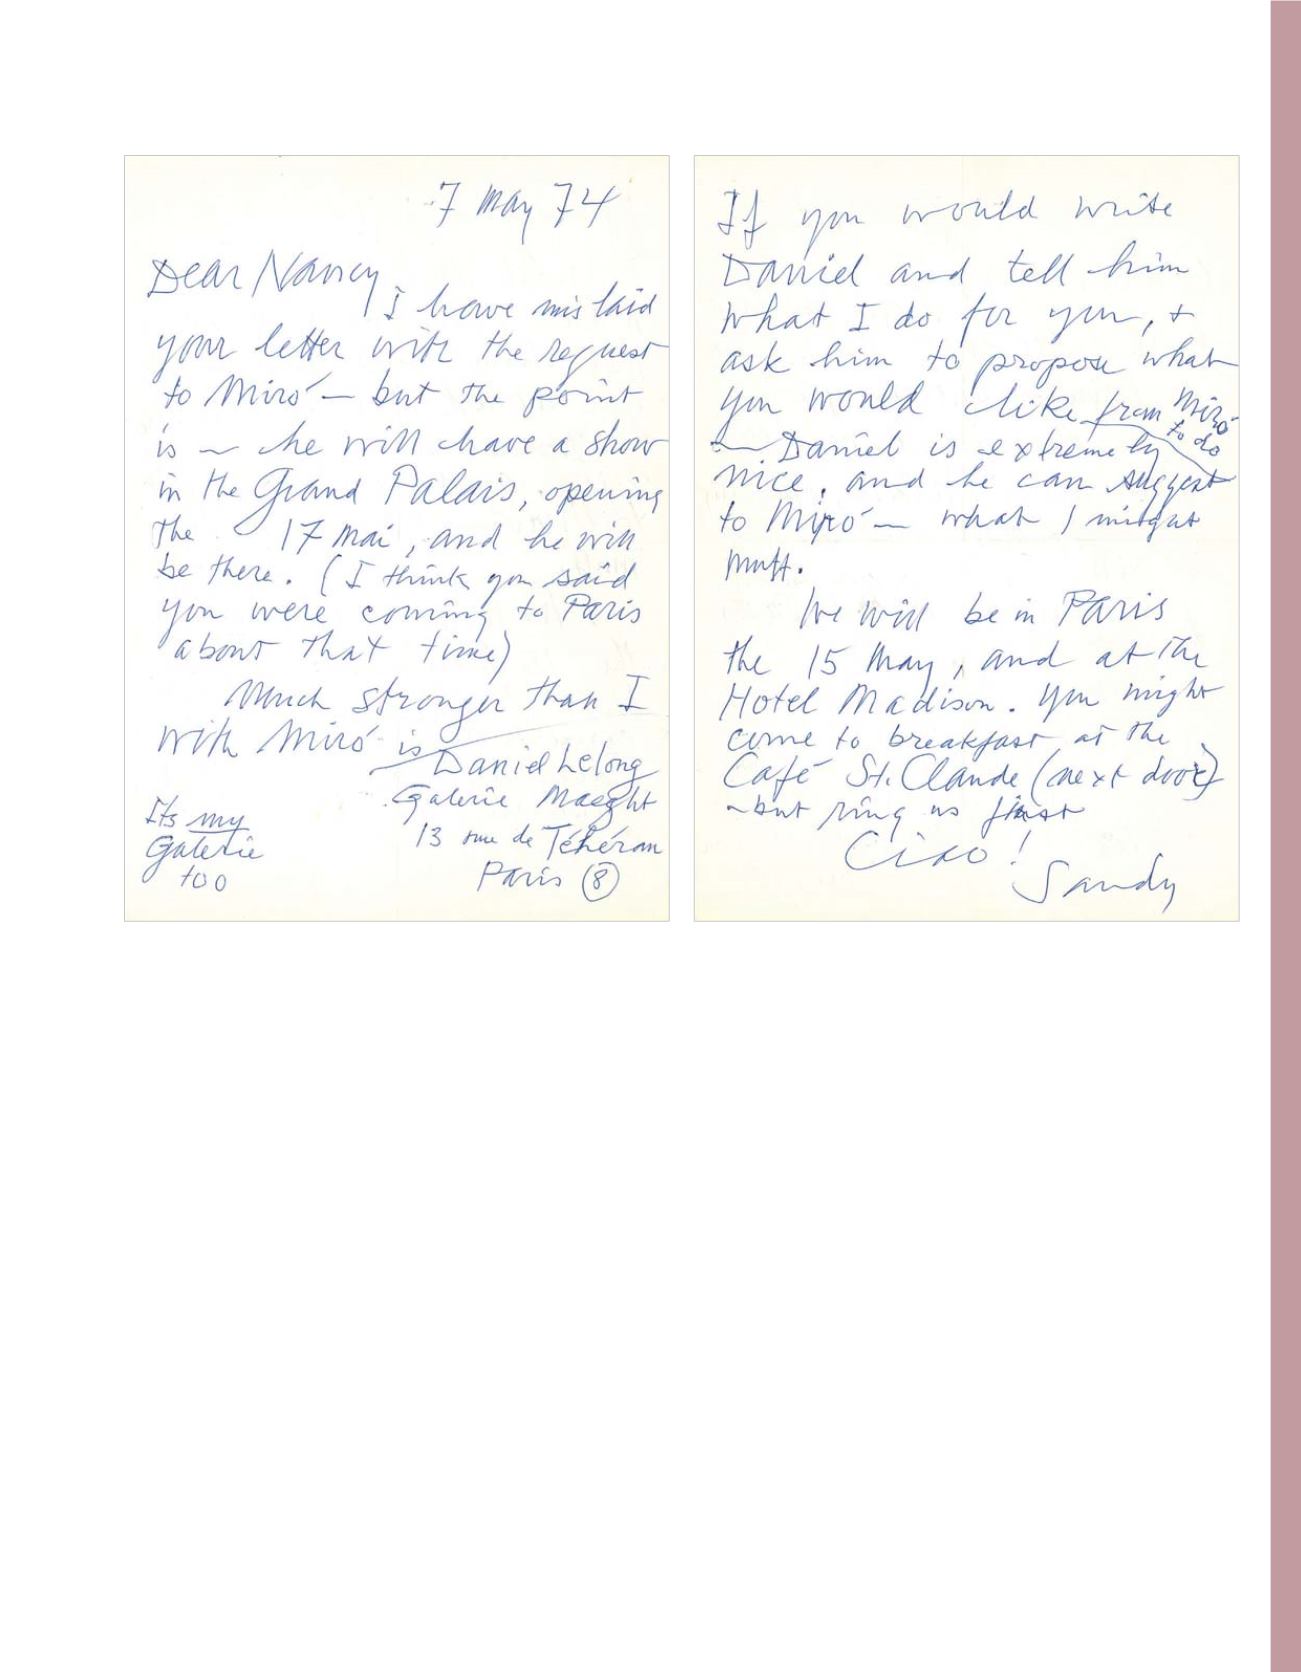 7 May 74
Dear Nancy
I have mislaid
your letter with the request
to Miró — but the point
is — he will have a show
in the Grand Palais, opening
the 17 Mai, and he will
be there. (I think you said
you were coming to Paris
about that time)
Much stronger than I
with Miró is
Daniel Lelong
Galerie Maeght
13 rue de Téhéran
Paris (8)
Its my
Galerie
too
If you would write
Daniel and tell him
what I do for you, +
ask him to propose what
you would like from Miró
to do
— Daniel is extremely
nice, and he can suggest
to Miró — what I might
muff.
We will be in Paris
the 15 May, and at the
Hotel Madison. You might
come to breakfast at the
Café St. Claude (next door)
— but ring us first
Ciao!
Sandy